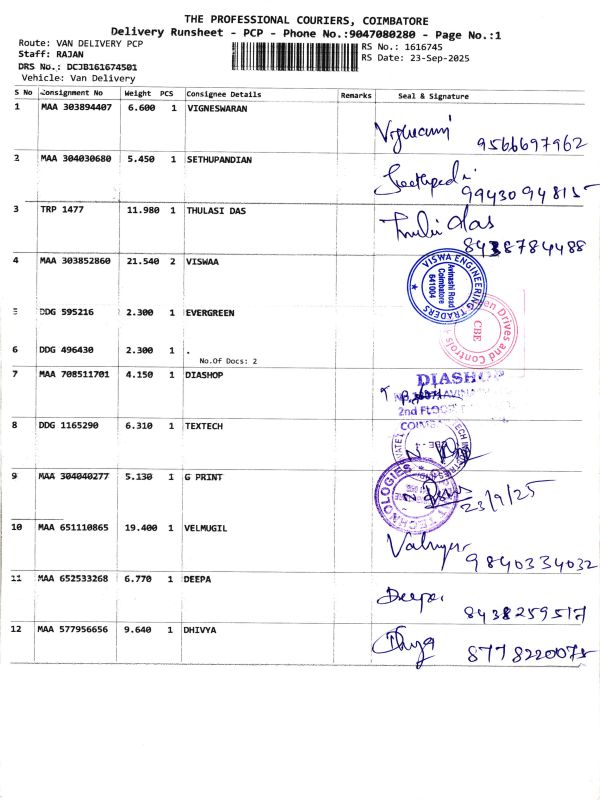 THE PROFESSIONAL COURIERS, COIMBATORE
Delivery Runsheet - PCP - Phone No.:9047080280 - Page No.:1
Route: VAN DELIVERY PCP
RS No.: 1616745
Staff: RAJAN
RS Date: 23-Sep-2025
DRS No.: DCJB161674501
Vehicle: Van Delivery
S No Consignment No Weight PCS Consignee Details Remarks Seal & Signature
1 MAA 303894407 6.600 1 VIGNESWARAN
9566697962
2 MAA 304030680 5.450 1 SETHUPANDIAN
9943094815
3 TRP 1477 11.980 1 THULASI DAS
8438784488
4 MAA 303852860 21.540 2 VISWAA
VISWA ENGINEERING TRADERS
Avinashi Road
Coimbatore
641004
5 DDG 595216 2.300 1 EVERGREEN
Drives and Controls
CBE
6 DDG 496430 2.300 1 .
No.Of Docs: 2
7 MAA 708511701 4.150 1 DIASHOP
DIASHOP
2nd FLOOR
8 DDG 1165290 6.310 1 TEXTECH
9 MAA 304040277 5.130 1 G PRINT
TECHNOLOGIES
23/9/25
10 MAA 651110865 19.400 1 VELMUGIL
9840334032
11 MAA 652533268 6.770 1 DEEPA
Deepa.
8438259517
12 MAA 577956656 9.640 1 DHIVYA
8778220075